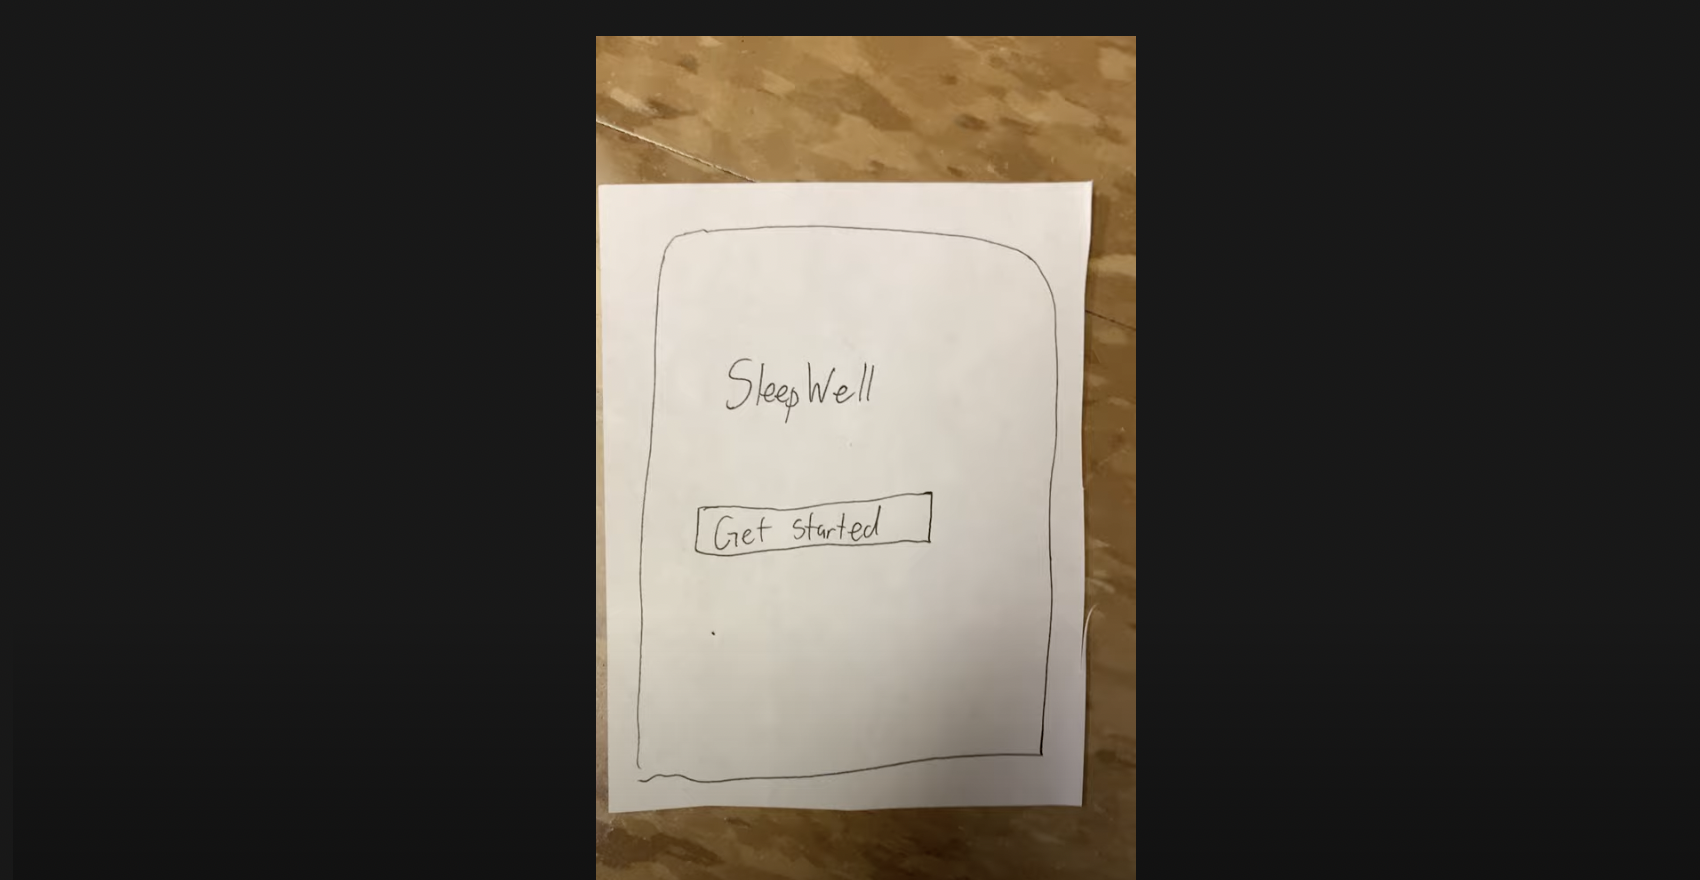 SleepWell
Get started